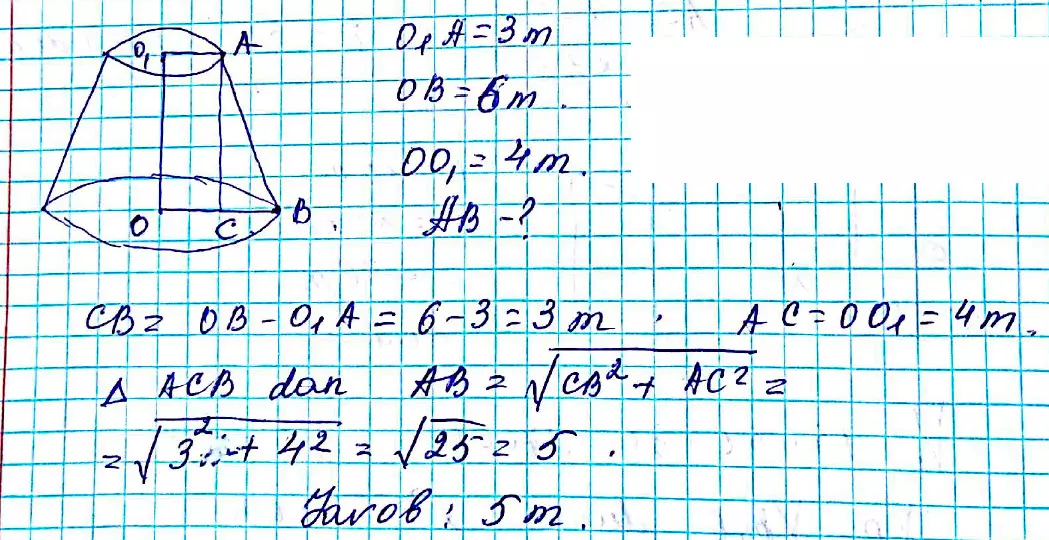 O₁ A
O C B
O₁A = 3 m
OB = 6 m.
OO₁ = 4 m.
AB - ?
CB = OB - O₁A = 6 - 3 = 3 m. AC = OO₁ = 4 m.
Δ ACB dan AB = √(CB² + AC²) =
= √(3² + 4²) = √25 = 5.
Javob: 5 m.